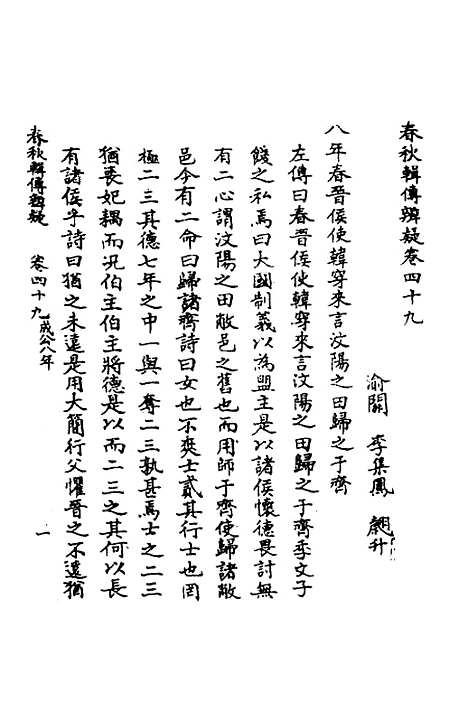 春秋輯傳辨疑卷四十九
渝關 李集鳳 翽升
八年春晉侯使韓穿來言汶陽之田歸之于齊
左傳曰春晉侯使韓穿來言汶陽之田歸之于齊季文子
餞之私焉曰大國制義以為盟主是以諸侯懷德畏討無
有二心謂汶陽之田敝邑之舊也而用師于齊使歸諸敝
邑今有二命曰歸諸齊詩曰女也不爽士貳其行士也罔
極二三其德七年之中一與一奪二三孰甚焉士之二三
猶喪妃耦而况伯主伯主將德是以而二三之其何以長
有諸侯乎詩曰猶之未遠是用大簡行父懼晉之不遠猶
春秋輯傳辨疑 卷四十九 成公八年 一